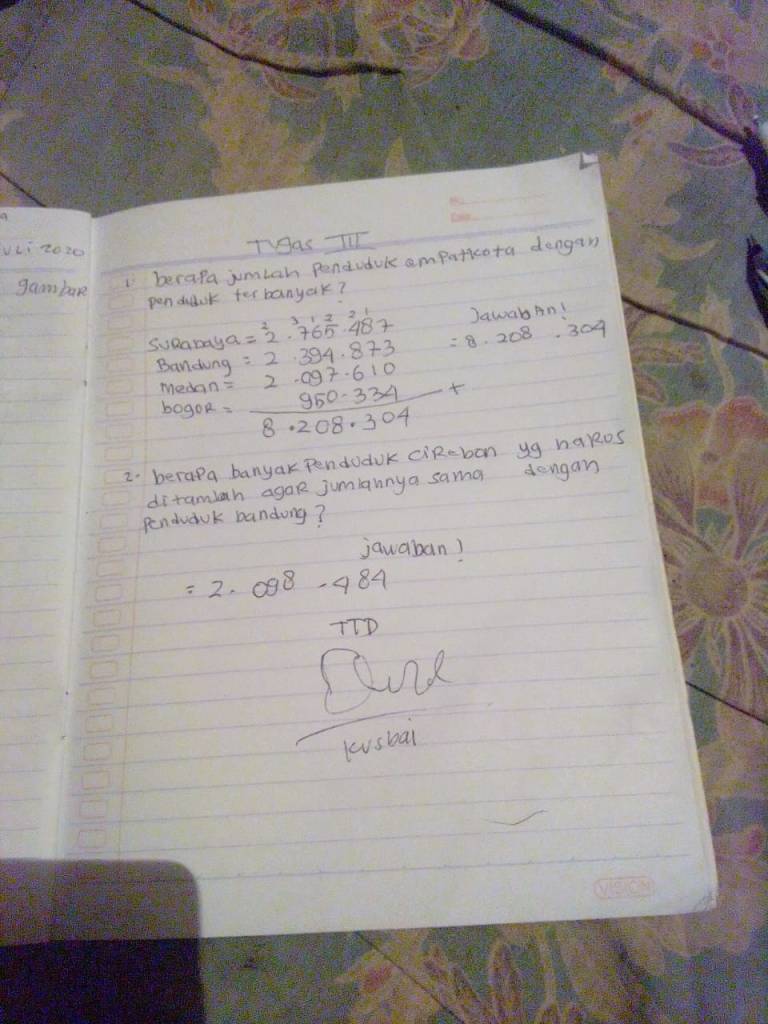 uLi 2020
gambar
No.
Date.
Tugas III
1. berapa jumlah penduduk empatkota dengan
penduduk terbanyak?
2 3 1 2 2 1
Surabaya = 2.765.487
Bandung = 2.394.873
Medan = 2.097.610
bogor = 950.334 +
8.208.304
Jawaban!
= 8.208.304
2. berapa banyak penduduk cirebon yg harus
ditamlah agar jumlahnya sama dengan
penduduk bandung?
jawaban!
= 2.098.484
TTD
kusbai
VISION